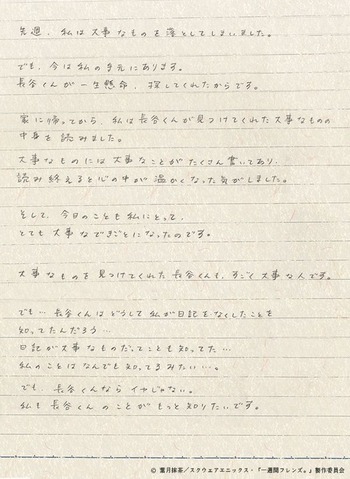 先週、私は大事なものを落としてしまいました。
でも、今は私の手元にあります。
長谷くんが一生懸命、探してくれたからです。
家に帰ってから、私は長谷くんが見つけてくれた大事なものの
中身を読みました。
大事なものには大事なことがたくさん書いてあり、
読み終えると心の中が温かくなった気がしました。
そして、今日のことも私にとって、
とても大事なできごとになったのです。
大事なものを見つけてくれた長谷くんも、すごく大事な人です。
でも…長谷くんはどうして私が日記をなくしたことを
知ってたんだろう…
日記が大事なものだってことも知ってた…
私のことはなんでも知ってるみたい…。
でも、長谷くんならイヤじゃない。
私も長谷くんのことがもっと知りたいです。
© 葉月抹茶／スクウェアエニックス・「一週間フレンズ。」製作委員会